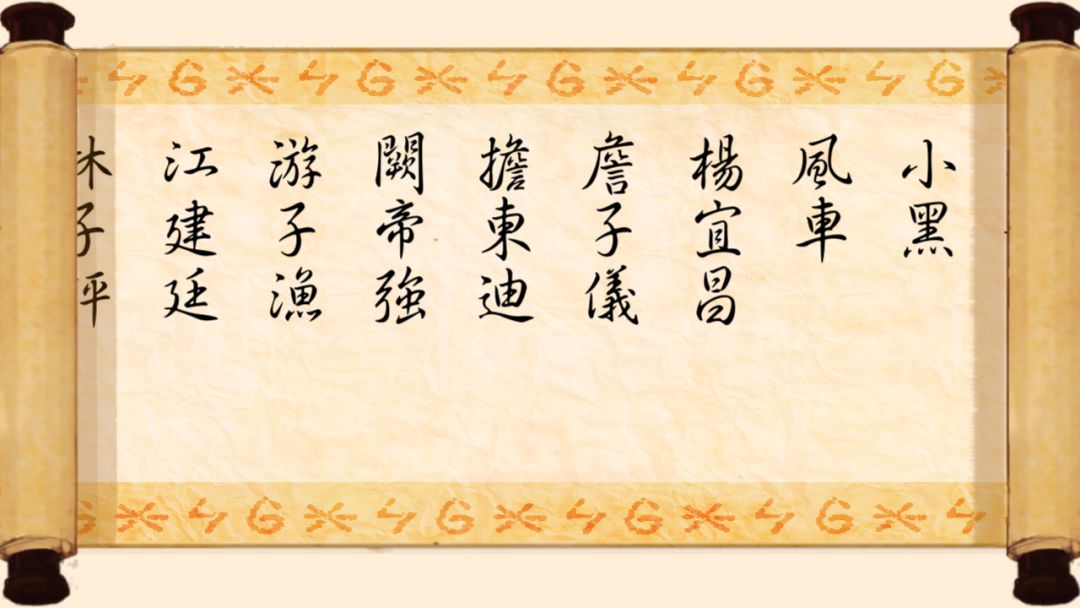 小黑
風車
楊宜昌
詹子儀
擔東迪
闕帝強
游子漁
江建廷
林子坪